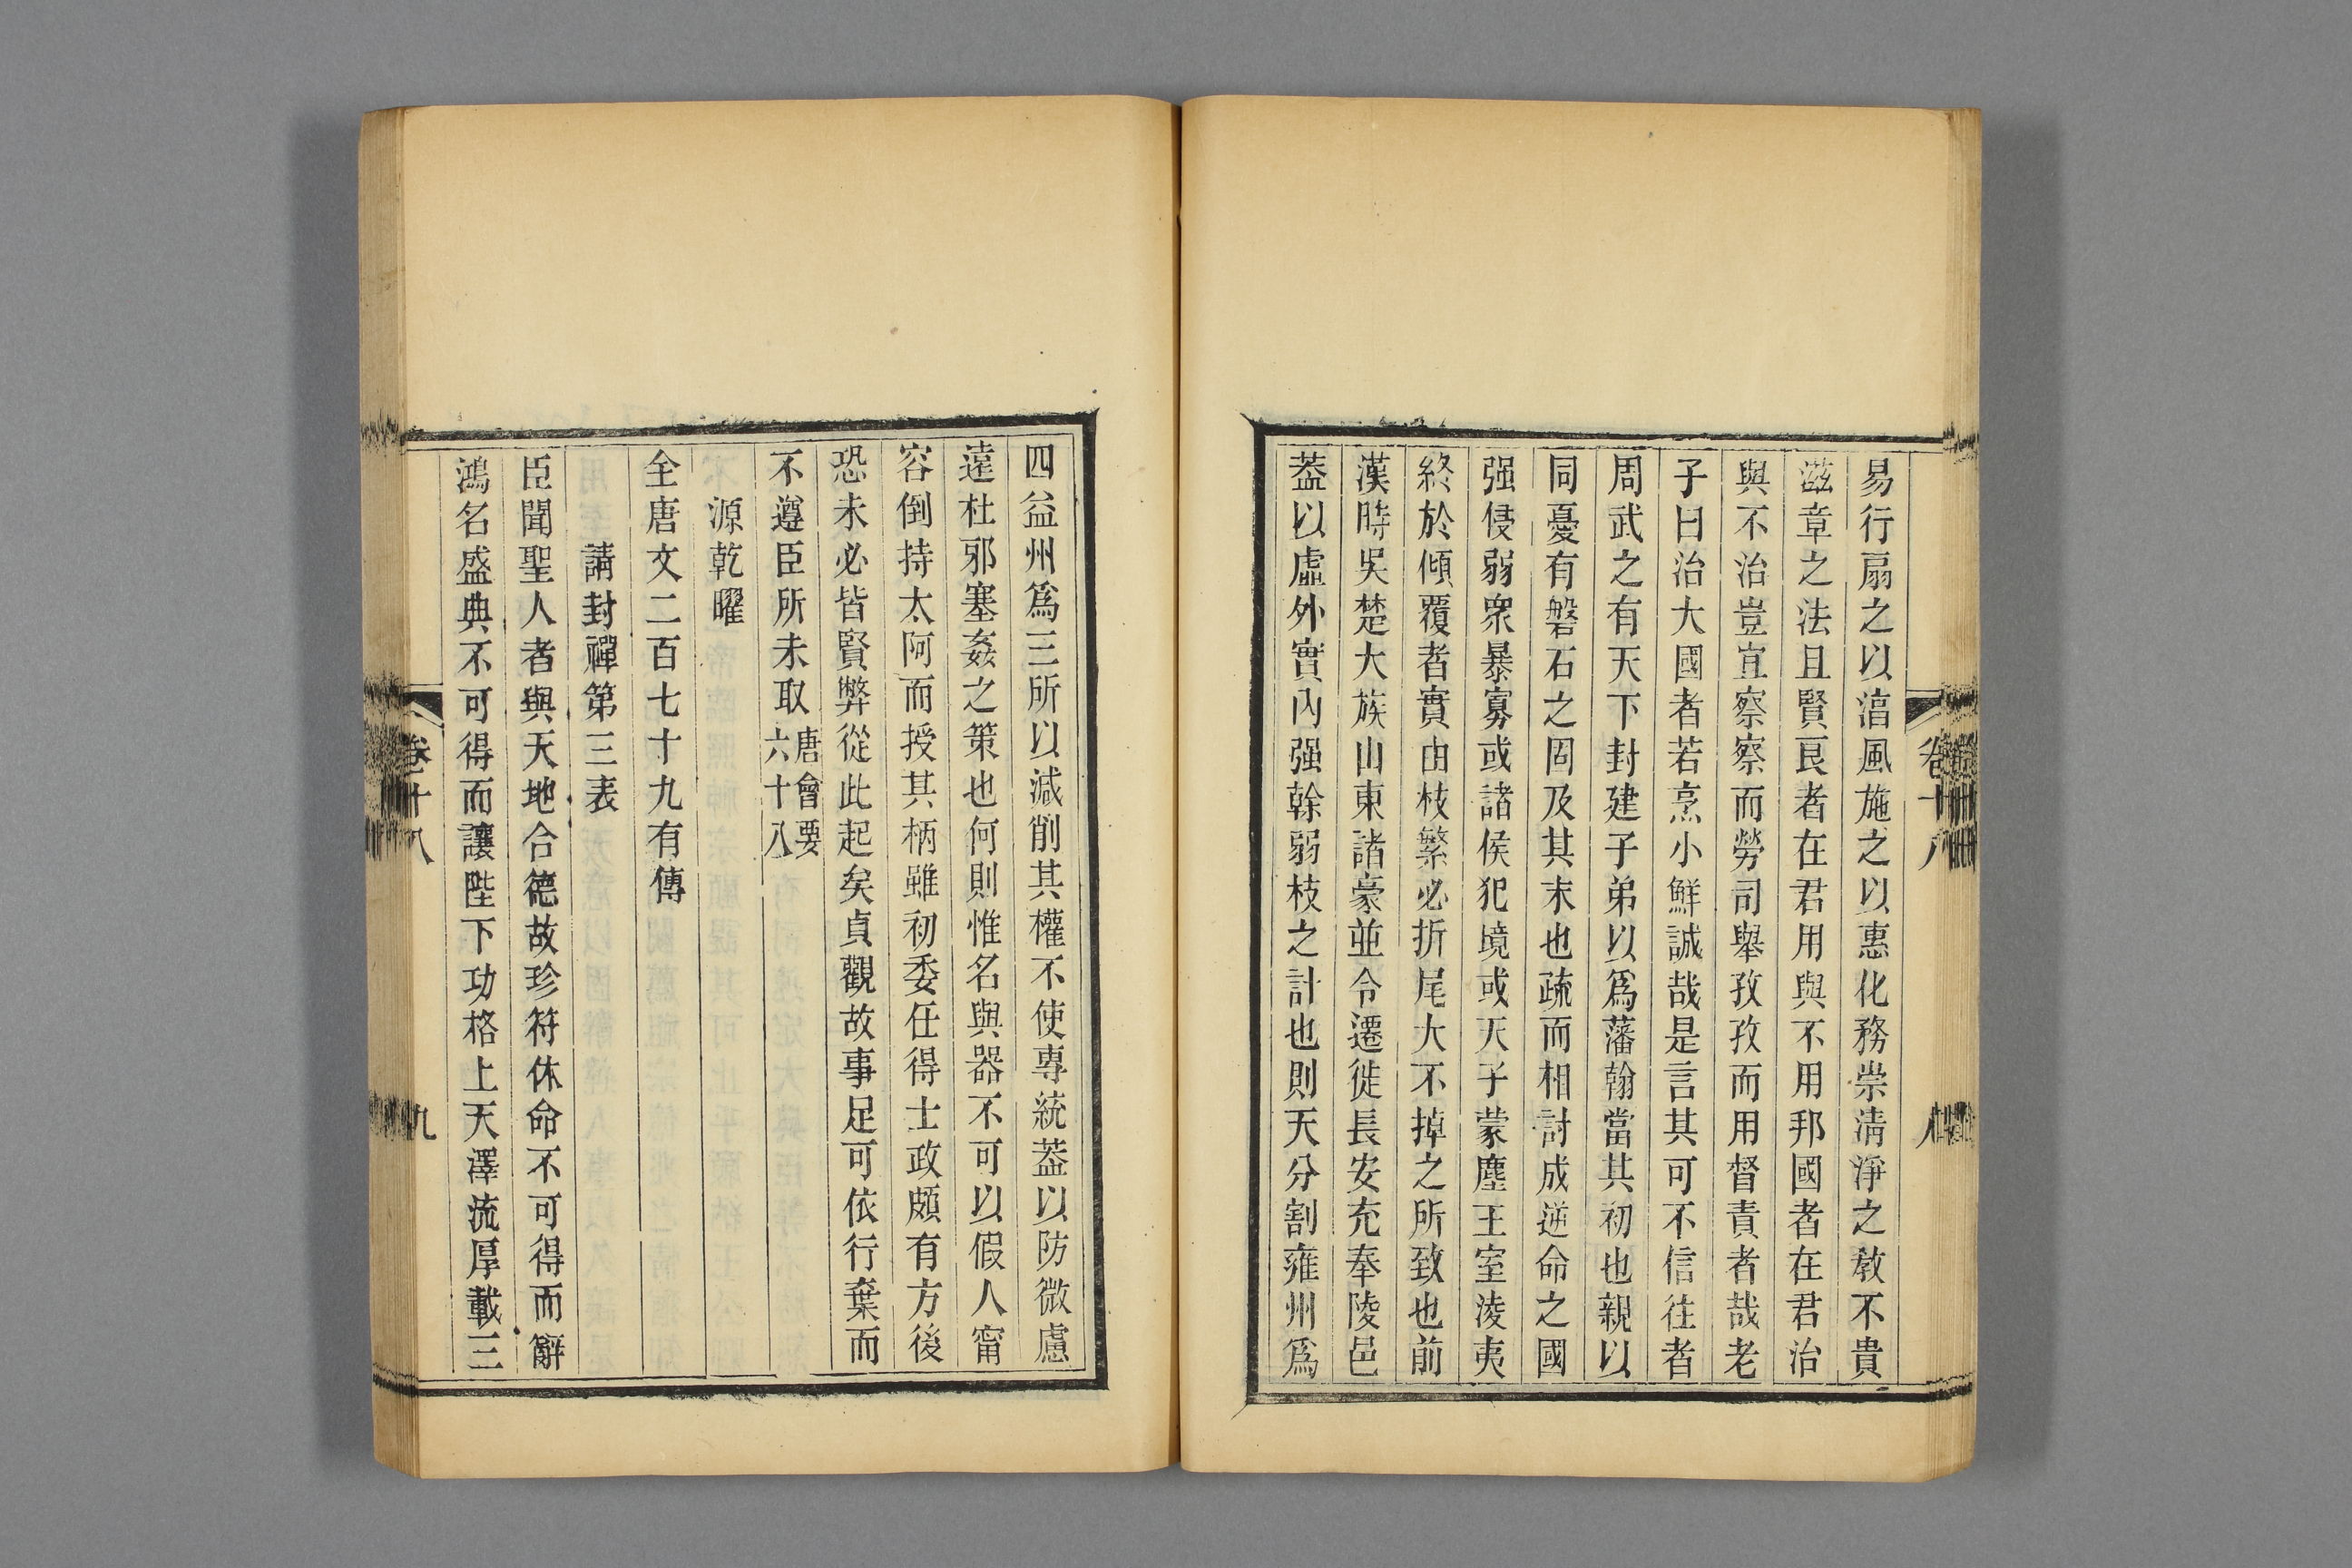 易行扇之以淳風施之以惠化務崇清淨之教不貴
滋章之法且賢良者在君用與不用邦國者在君治
與不治豈宜察察而勞司舉孜孜而用督責者哉老
子曰治大國者若烹小鮮誠哉是言其可不信往者
周武之有天下封建子弟以爲藩翰當其初也親以
同憂有磐石之固及其末也疏而相討成逆命之國
强侵弱衆暴寡或諸侯犯境或天子蒙塵王室淩夷
終於傾覆者實由枝繁必折尾大不掉之所致也前
漢時吳楚大族山東諸豪並令遷徙長安充奉陵邑
葢以虛外實內强幹弱枝之計也則天分割雍州爲
卷十八
八
四益州爲三所以減削其權不使專統葢以防微慮
遠杜邪塞姦之策也何則惟名與器不可以假人甯
容倒持太阿而授其柄雖初委任得士政頗有方後
恐未必皆賢弊從此起矣貞觀故事足可依行棄而
不遵臣所未取唐會要六十八
源乾曜
全唐文二百七十九有傳
請封禪第三表
臣聞聖人者與天地合德故珍符休命不可得而辭
鴻名盛典不可得而讓陛下功格上天澤流厚載三
卷十八
九